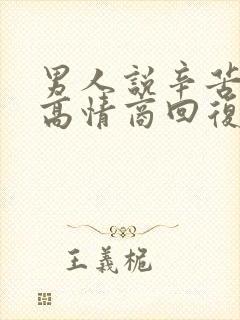 男人說辛苦
高情商回復
王義栀